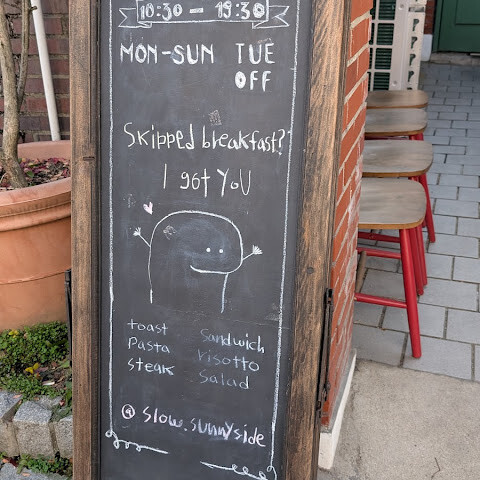 10:30 – 19:30
MON-SUN TUE
OFF
Skipped breakfast?
I got YoU
toast sandwich
Pasta risotto
steak salad
@ slow.sunnyside